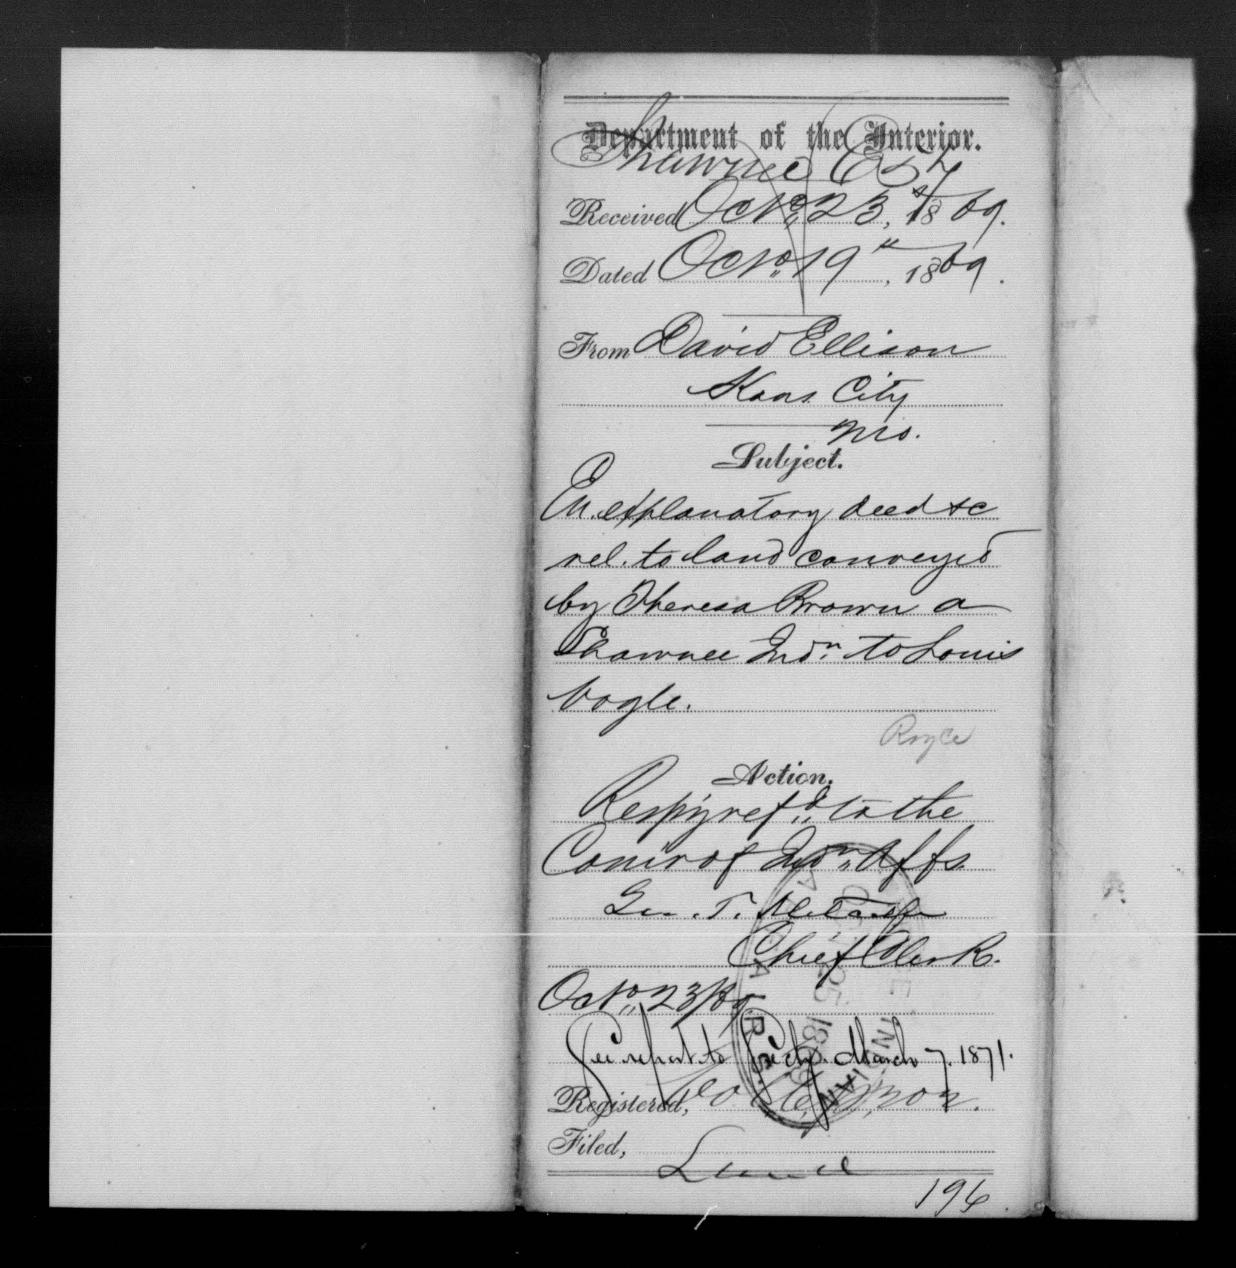 Department of the Interior.
Shawnee
Received Oct. 23, 1869.
Dated Octo. 19th, 1869.
From David Ellison
Kans. City
Mo.
Subject.
En. explanatory deed &c
rel. to land conveyed
by Theresa Brown a
Shawnee Indn. to Louis
Vogle.
Royce
Action.
Respy. refd. to the
Comr of Indn. Affs
Geo. T. Metcalfe
Chief Clerk.
Octo. 23/69
See report to Secty. March 7. 1871.
Registered,
Filed,
Land
196
OFFICE INDIAN AFFAIRS
OC 25 1869